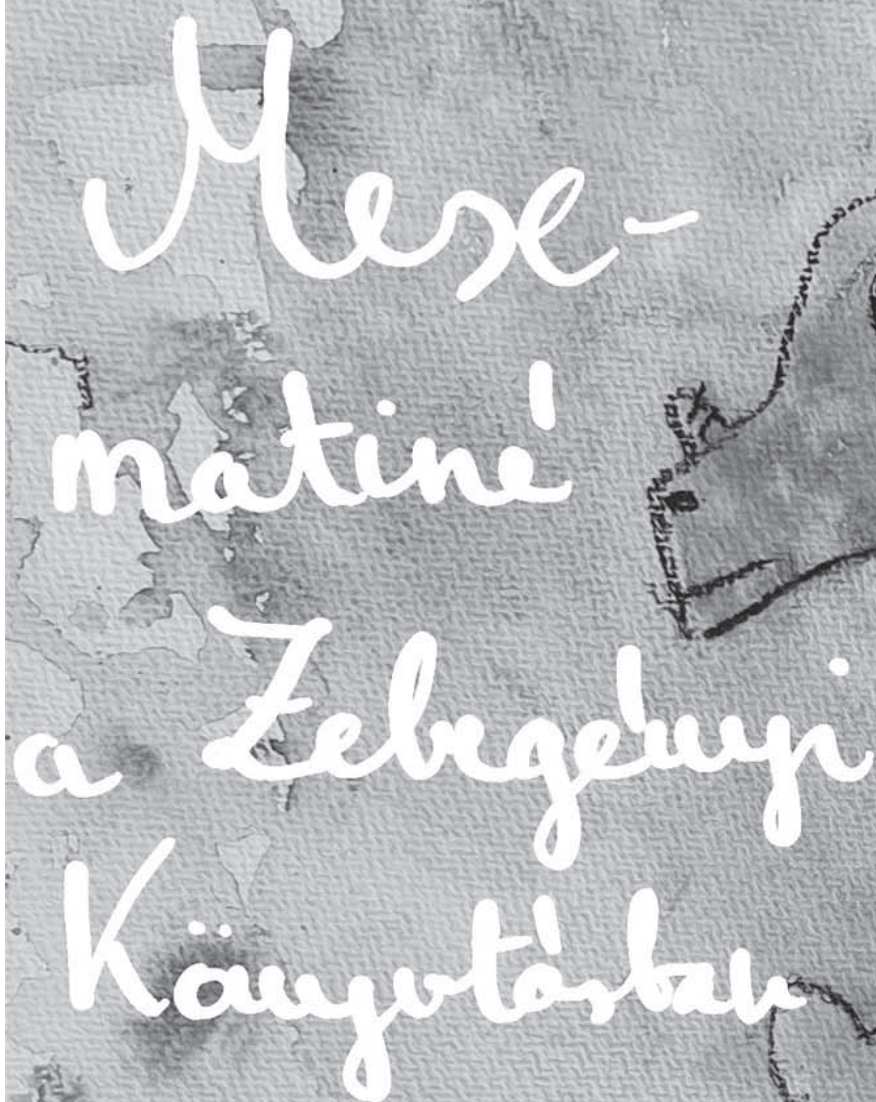 Mese-
matiné
a Zebegényi
Könyvtárban